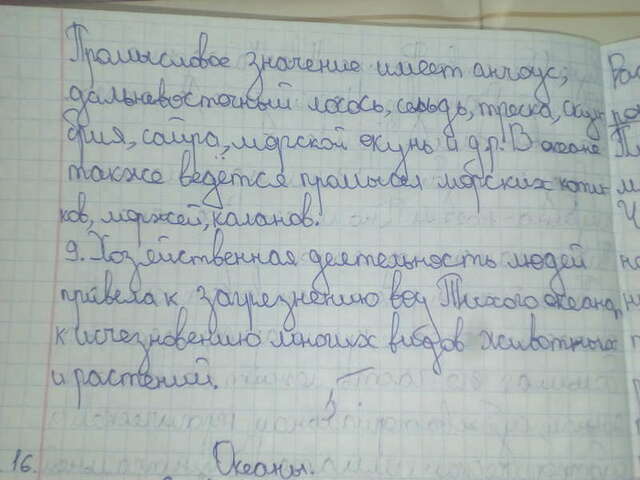 Промысловое значение имеет анчоус,
дальневосточный лосось, сельдь, треска, скум
брия, сайра, морской окунь и др. В океане
также ведётся промысел морских коти-
ков, моржей, каланов.
9. Хозяйственная деятельность людей
привела к загрезнению вод Тихого океана,
к исчезновению многих видов животных
и растений.
16. Океаны.